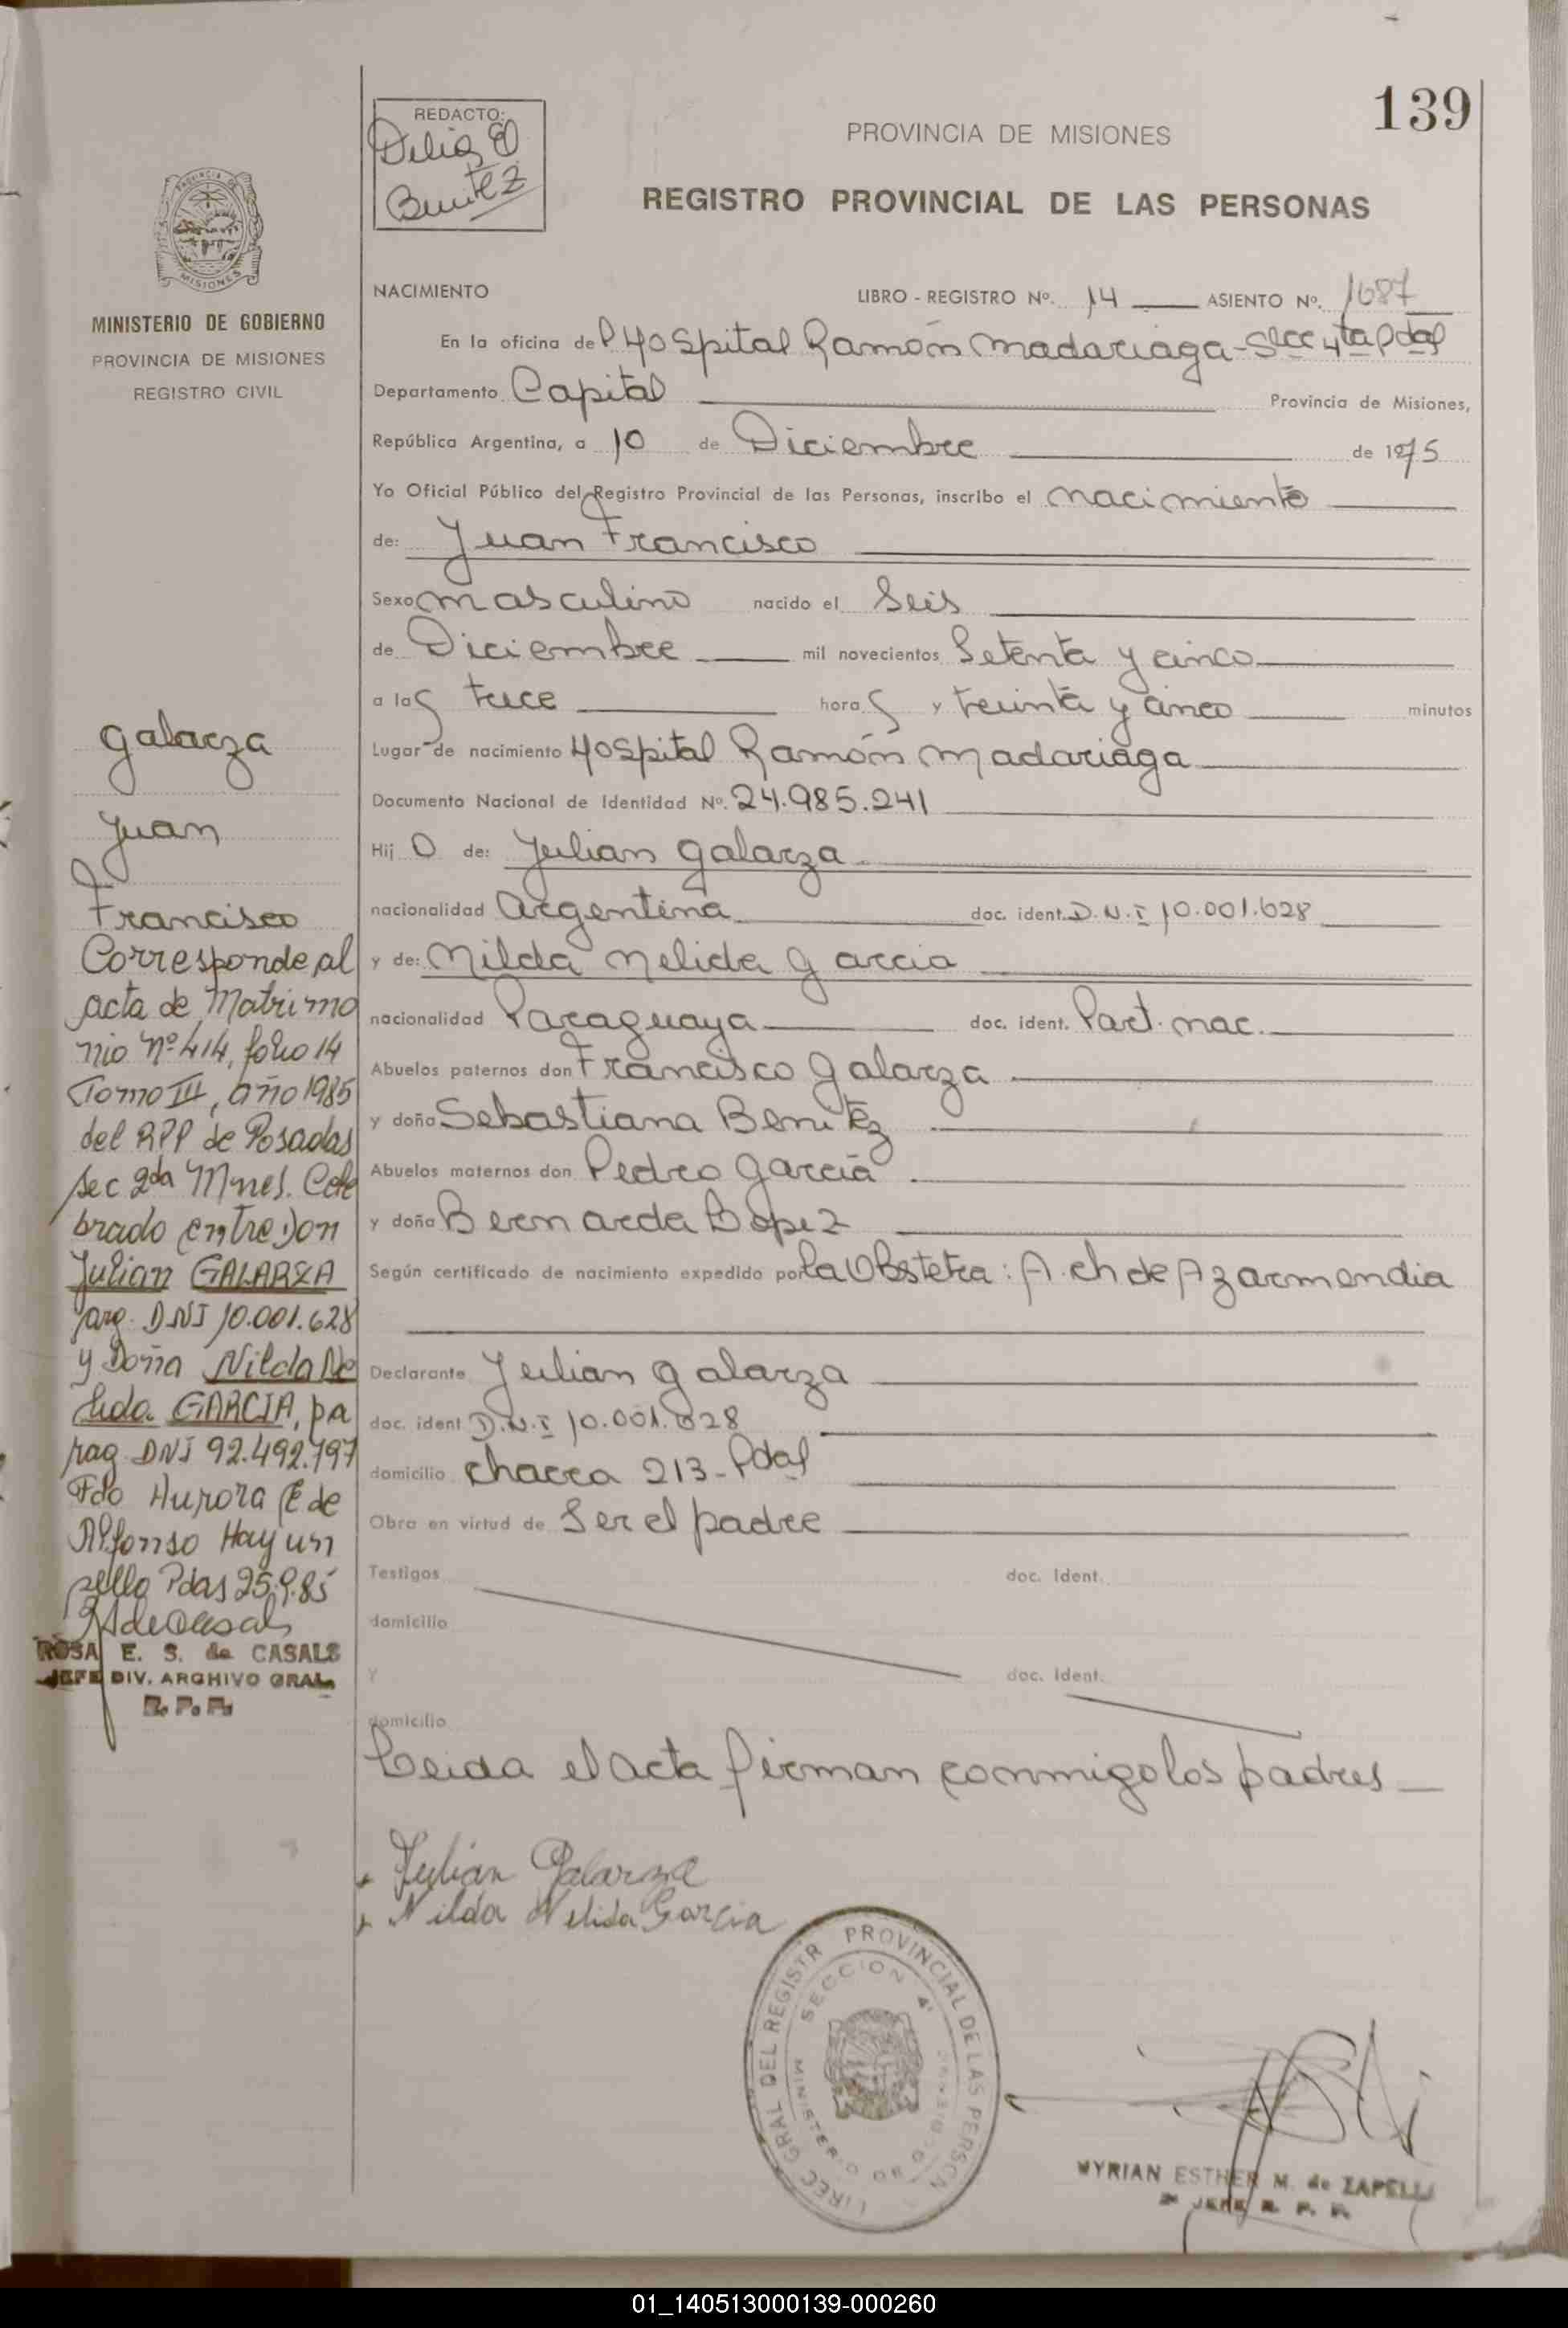 139
REDACTO:
Delia E
Benitez
PROVINCIA DE MISIONES
REGISTRO PROVINCIAL DE LAS PERSONAS
PROVINCIA DE
MISIONES
MINISTERIO DE GOBIERNO
PROVINCIA DE MISIONES
REGISTRO CIVIL
NACIMIENTO LIBRO - REGISTRO Nº. 14 ASIENTO Nº. 1687
En la oficina del Hospital Ramón Madariaga - Secc 4ta Pdas
Departamento Capital Provincia de Misiones,
República Argentina, a 10 de Diciembre de 1975
Yo Oficial Público del Registro Provincial de las Personas, inscribo el nacimiento
de: Juan Francisco
Sexo masculino nacido el Seis
de Diciembre mil novecientos Setenta y cinco
a las trece horas y treinta y cinco minutos
Lugar de nacimiento Hospital Ramón Madariaga
Documento Nacional de Identidad Nº. 24.985.241
Hijo de: Julian Galarza
nacionalidad Argentina doc. ident. D.N.I 10.001.628
y de: Nilda Nelida Garcia
nacionalidad Paraguaya doc. ident. Part. nac.
Abuelos paternos don Francisco Galarza
y doña Sebastiana Benitez
Abuelos maternos don Pedro García
y doña Bernarda Lopez
Según certificado de nacimiento expedido por la Obstetra: A. ch de Azarmendia
Declarante Julian Galarza
doc. ident D.N.I 10.001.628
domicilio chacra 213 - Pdas
Obra en virtud de Ser el padre
Testigos doc. Ident.
domicilio
y doc. Ident.
domicilio
Leida el acta firman conmigo los padres
Julian Galarza
Nilda Nelida Garcia
Galarza
Juan
Francisco
Corresponde al
acta de Matrimo
nio nº 414, folio 14
Tomo III, año 1985
del RPP de Posadas
sec 2da Mnes. Cele
brado entre Don
Julian GALARZA
arg. DNI 10.001.628
y Doña Nilda Ne
lida GARCIA, pa
rag DNI 92.492.797
Fdo Aurora E de
Alfonso Hay un
sello Pdas 25.9.85
ROSA E. S. de CASALS
JEFE DIV. ARCHIVO GRAL.
R. P. P.
DIREC GRAL DEL REGISTR PROVINCIAL DE LAS PERSON
SECCION 4ª
MINISTERIO DE GOBIERNO
MYRIAN ESTHER M. de ZAPELLI
JEFE R. P. P.
01_140513000139-000260